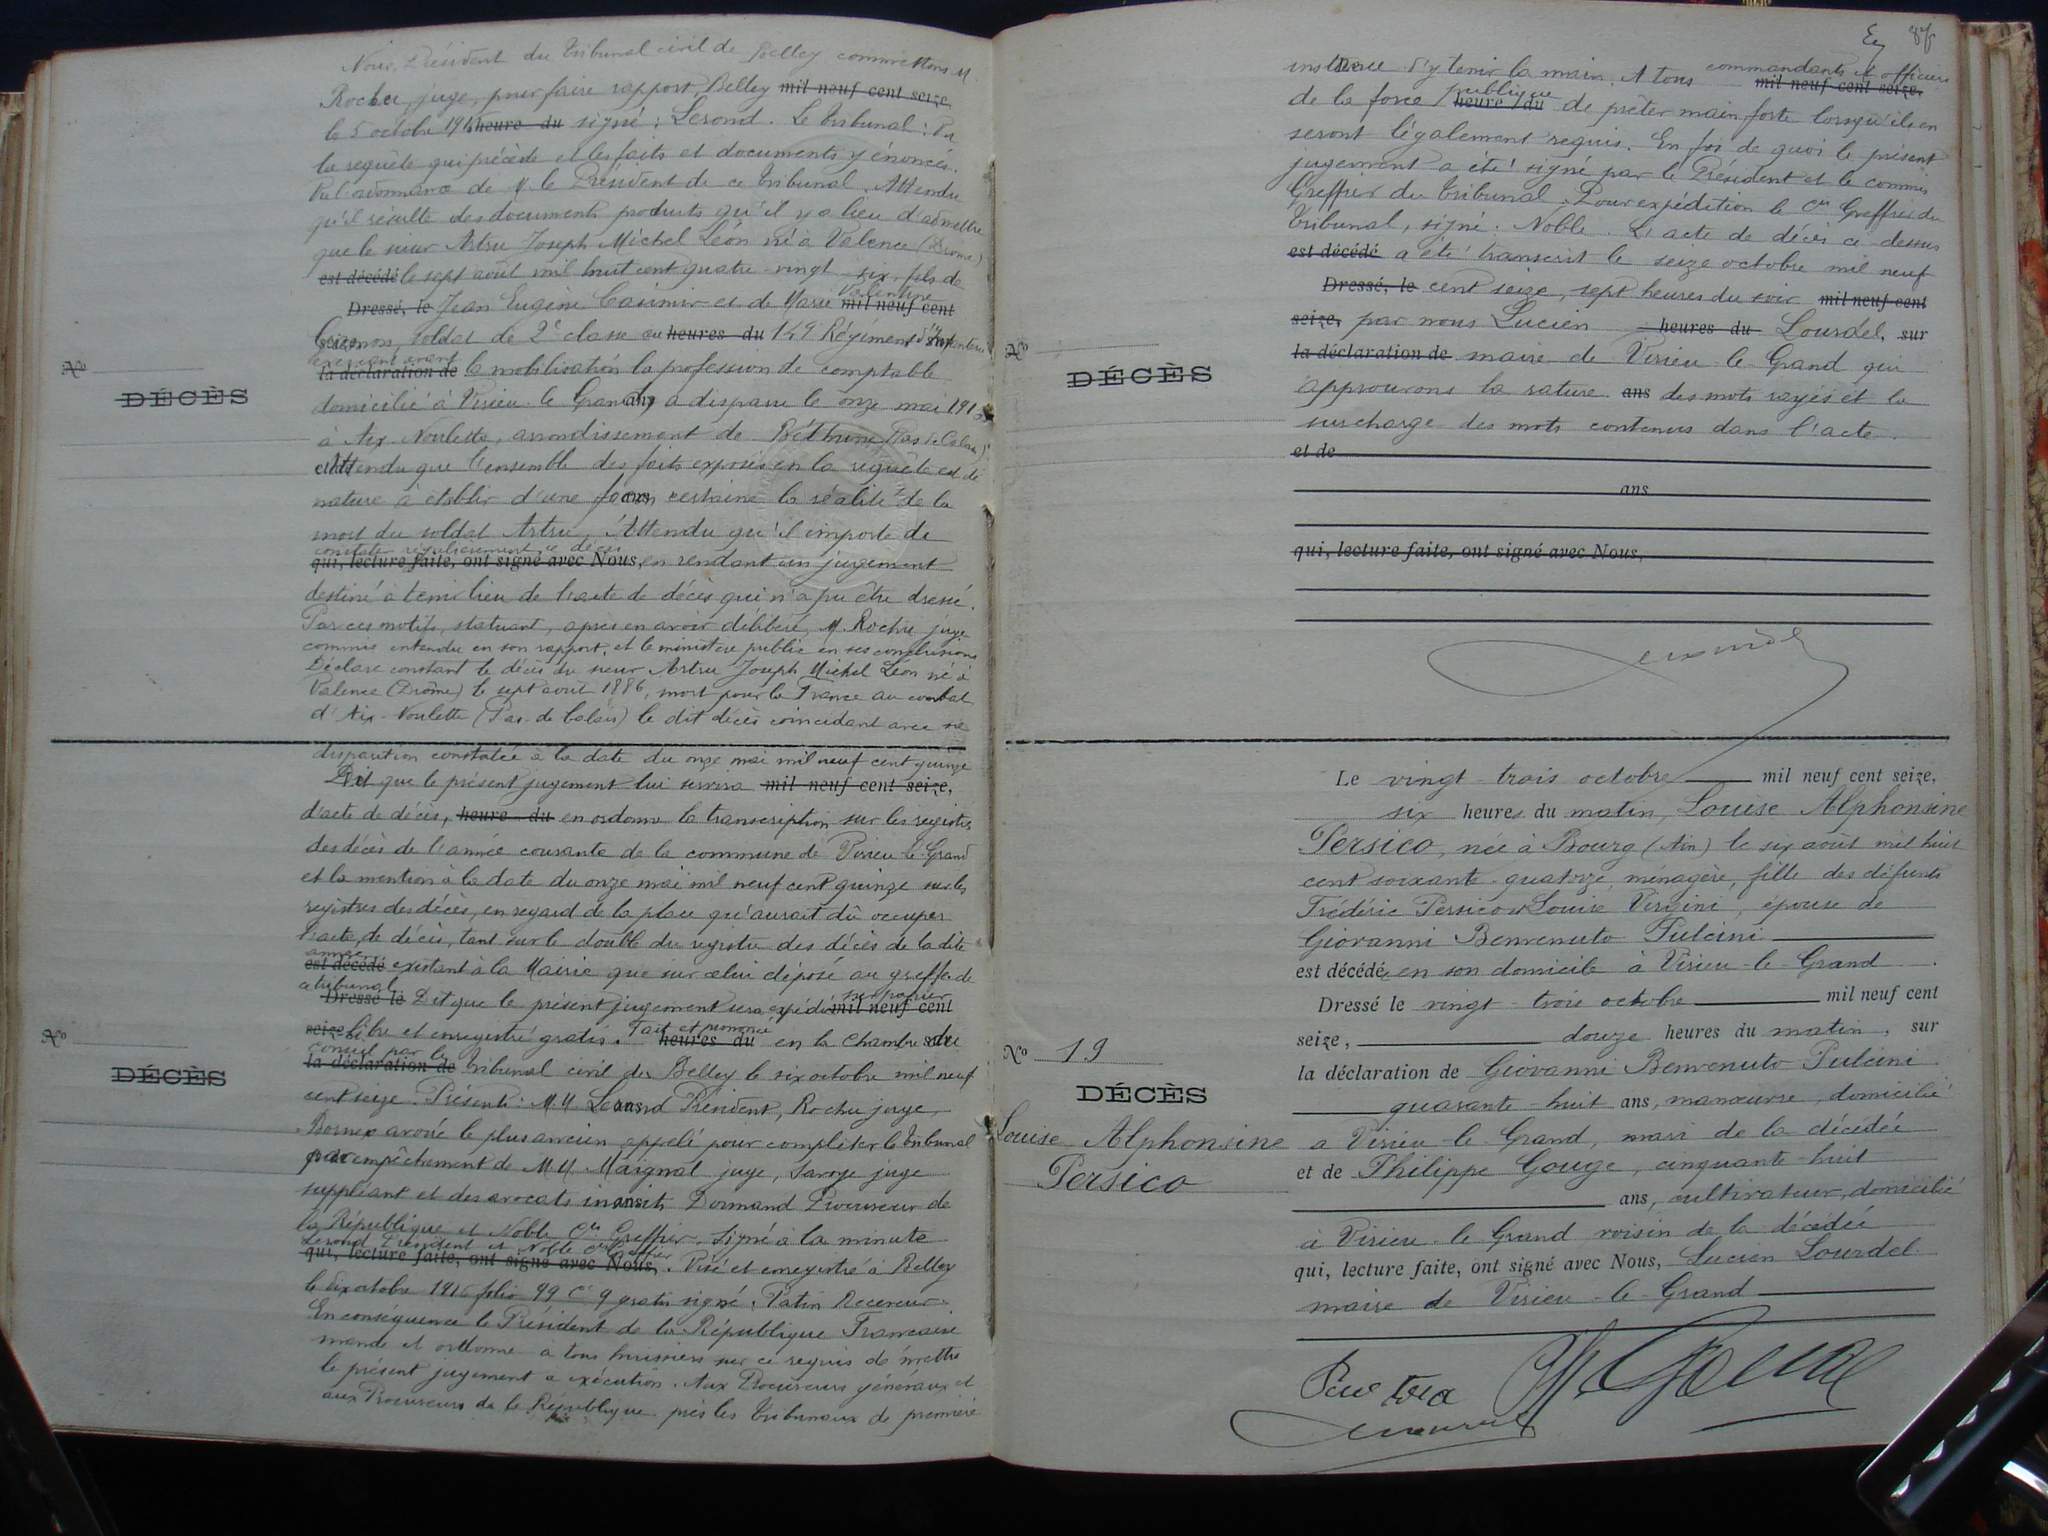 Nous, Président du Tribunal civil de Belley commettons M.
Rocher, juge, pour faire rapport, Belley mil neuf cent seize,
le 5 octobre 1916 heure du signé : Lerond. Le Tribunal : Vu
la requête qui précède et les faits et documents y énoncés.
Vu l'ordonnance de M. le Président de ce tribunal. Attendu
qu'il résulte des documents produits qu'il y a lieu d'admettre
que le sieur Artru Joseph Michel Léon né à Valence (Drôme)
est décédé le sept août mil huit cent quatre-vingt-six, fils de
Dressé, le Jean Eugène Casimir et de Marie Valentine mil neuf cent
soldat de 2e classe au heures du 149 Régiment d'Infanterie
exerçant avant
la déclaration de la mobilisation la profession de comptable
domicilié à Virieu-le-Grand ans a disparu le onze mai 1915
à Aix-Noulette, arrondissement de Béthune (Pas-de-Calais)
Attendu que l'ensemble des faits exposés en la requête est de
nature à établir d'une façon certaine la réalité de la
mort du soldat Artru, Attendu qu'il importe de
constater régulièrement ce décès
qui, lecture faite, ont signé avec Nous, en rendant un jugement
destiné à tenir lieu de l'acte de décès qui n'a pu être dressé.
Par ces motifs, statuant, après en avoir délibéré, M. Rocher juge
commis entendu en son rapport, et le ministère public en ses conclusions
Déclare constant le décès du sieur Artru Joseph Michel Léon né à
Valence (Drôme) le sept août 1886, mort pour la France au combat
d'Aix-Noulette (Pas-de-Calais) le dit décès coïncidant avec sa
disparition constatée à la date du onze mai mil neuf cent quinze
Dit que le présent jugement lui servira mil neuf cent seize,
d'acte de décès, heure du en ordonne la transcription sur les registres
des décès de l'année courante de la commune de Virieu-le-Grand
et la mention à la date du onze mai mil neuf cent quinze sur les
registres des décès, en regard de la place qu'aurait dû occuper
l'acte de décès, tant sur le double du registre des décès de la dite
année
est décédé existant à la Mairie que sur celui déposé au greffe de
ce tribunal
Dressé le Dit que le présent jugement sera expédié sur papier mil neuf cent
seize libre et enregistré gratis. Fait et prononcé heures du en la chambre du
conseil par le
la déclaration de Tribunal civil de Belley le six octobre mil neuf
cent seize. Présents : M.M. Lerond Président, Rocher juge,
avoué le plus ancien appelé pour compléter le tribunal
par empêchement de M.M. Maignal juge, Savoye juge
suppléant et des avocats inscrits Dormand Procureur de
la République et Noble Cis Greffier. Signé à la minute
Lerond Président et Noble Cis Greffier
qui, lecture faite, ont signé avec Nous, Visé et enregistré à Belley
le dix octobre 1916 folio 99 C 9 gratis signé, Patin Receveur.
En conséquence le Président de la République Française
mande et ordonne à tous huissiers sur ce requis de mettre
le présent jugement à exécution. Aux Procureurs généraux et
aux Procureurs de la République près les tribunaux de première
No
DÉCÈS
No
DÉCÈS
87
instance d'y tenir la main. A tous commandants et officiers mil neuf cent seize,
de la force publique heure du de prêter main forte lorsqu'ils en
seront légalement requis. En foi de quoi le présent
jugement a été signé par le Président et le commis
Greffier du tribunal. Pour expédition le Cis Greffier du
tribunal, signé : Noble. L'acte de décès ci-dessus
est décédé a été transcrit le seize octobre mil neuf
Dressé, le cent seize, sept heures du soir mil neuf cent
seize, par nous Lucien heures du Lourdel, sur
la déclaration de maire de Virieu-le-Grand qui
approuvons la rature ans des mots rayés et la
surcharge des mots contenus dans l'acte.
et de
ans
qui, lecture faite, ont signé avec Nous,
No
DÉCÈS
Le vingt-trois octobre mil neuf cent seize,
six heures du matin, Louise Alphonsine
Persico, née à Bourg (Ain) le six août mil huit
cent soixante-quatorze, ménagère, fille des défunts
Frédéric Persico et Louise Virgini, épouse de
Giovanni Benvenuto Pulcini
est décédée en son domicile à Virieu-le-Grand.
Dressé le vingt-trois octobre mil neuf cent
seize, douze heures du matin, sur
la déclaration de Giovanni Benvenuto Pulcini
quarante-huit ans, manœuvre, domicilié
à Virieu-le-Grand, mari de la décédée
et de Philippe Gouge, cinquante-huit
ans, cultivateur, domicilié
à Virieu-le-Grand voisin de la décédée
qui, lecture faite, ont signé avec Nous, Lucien Lourdel
maire de Virieu-le-Grand
No 19
DÉCÈS
Louise Alphonsine
Persico